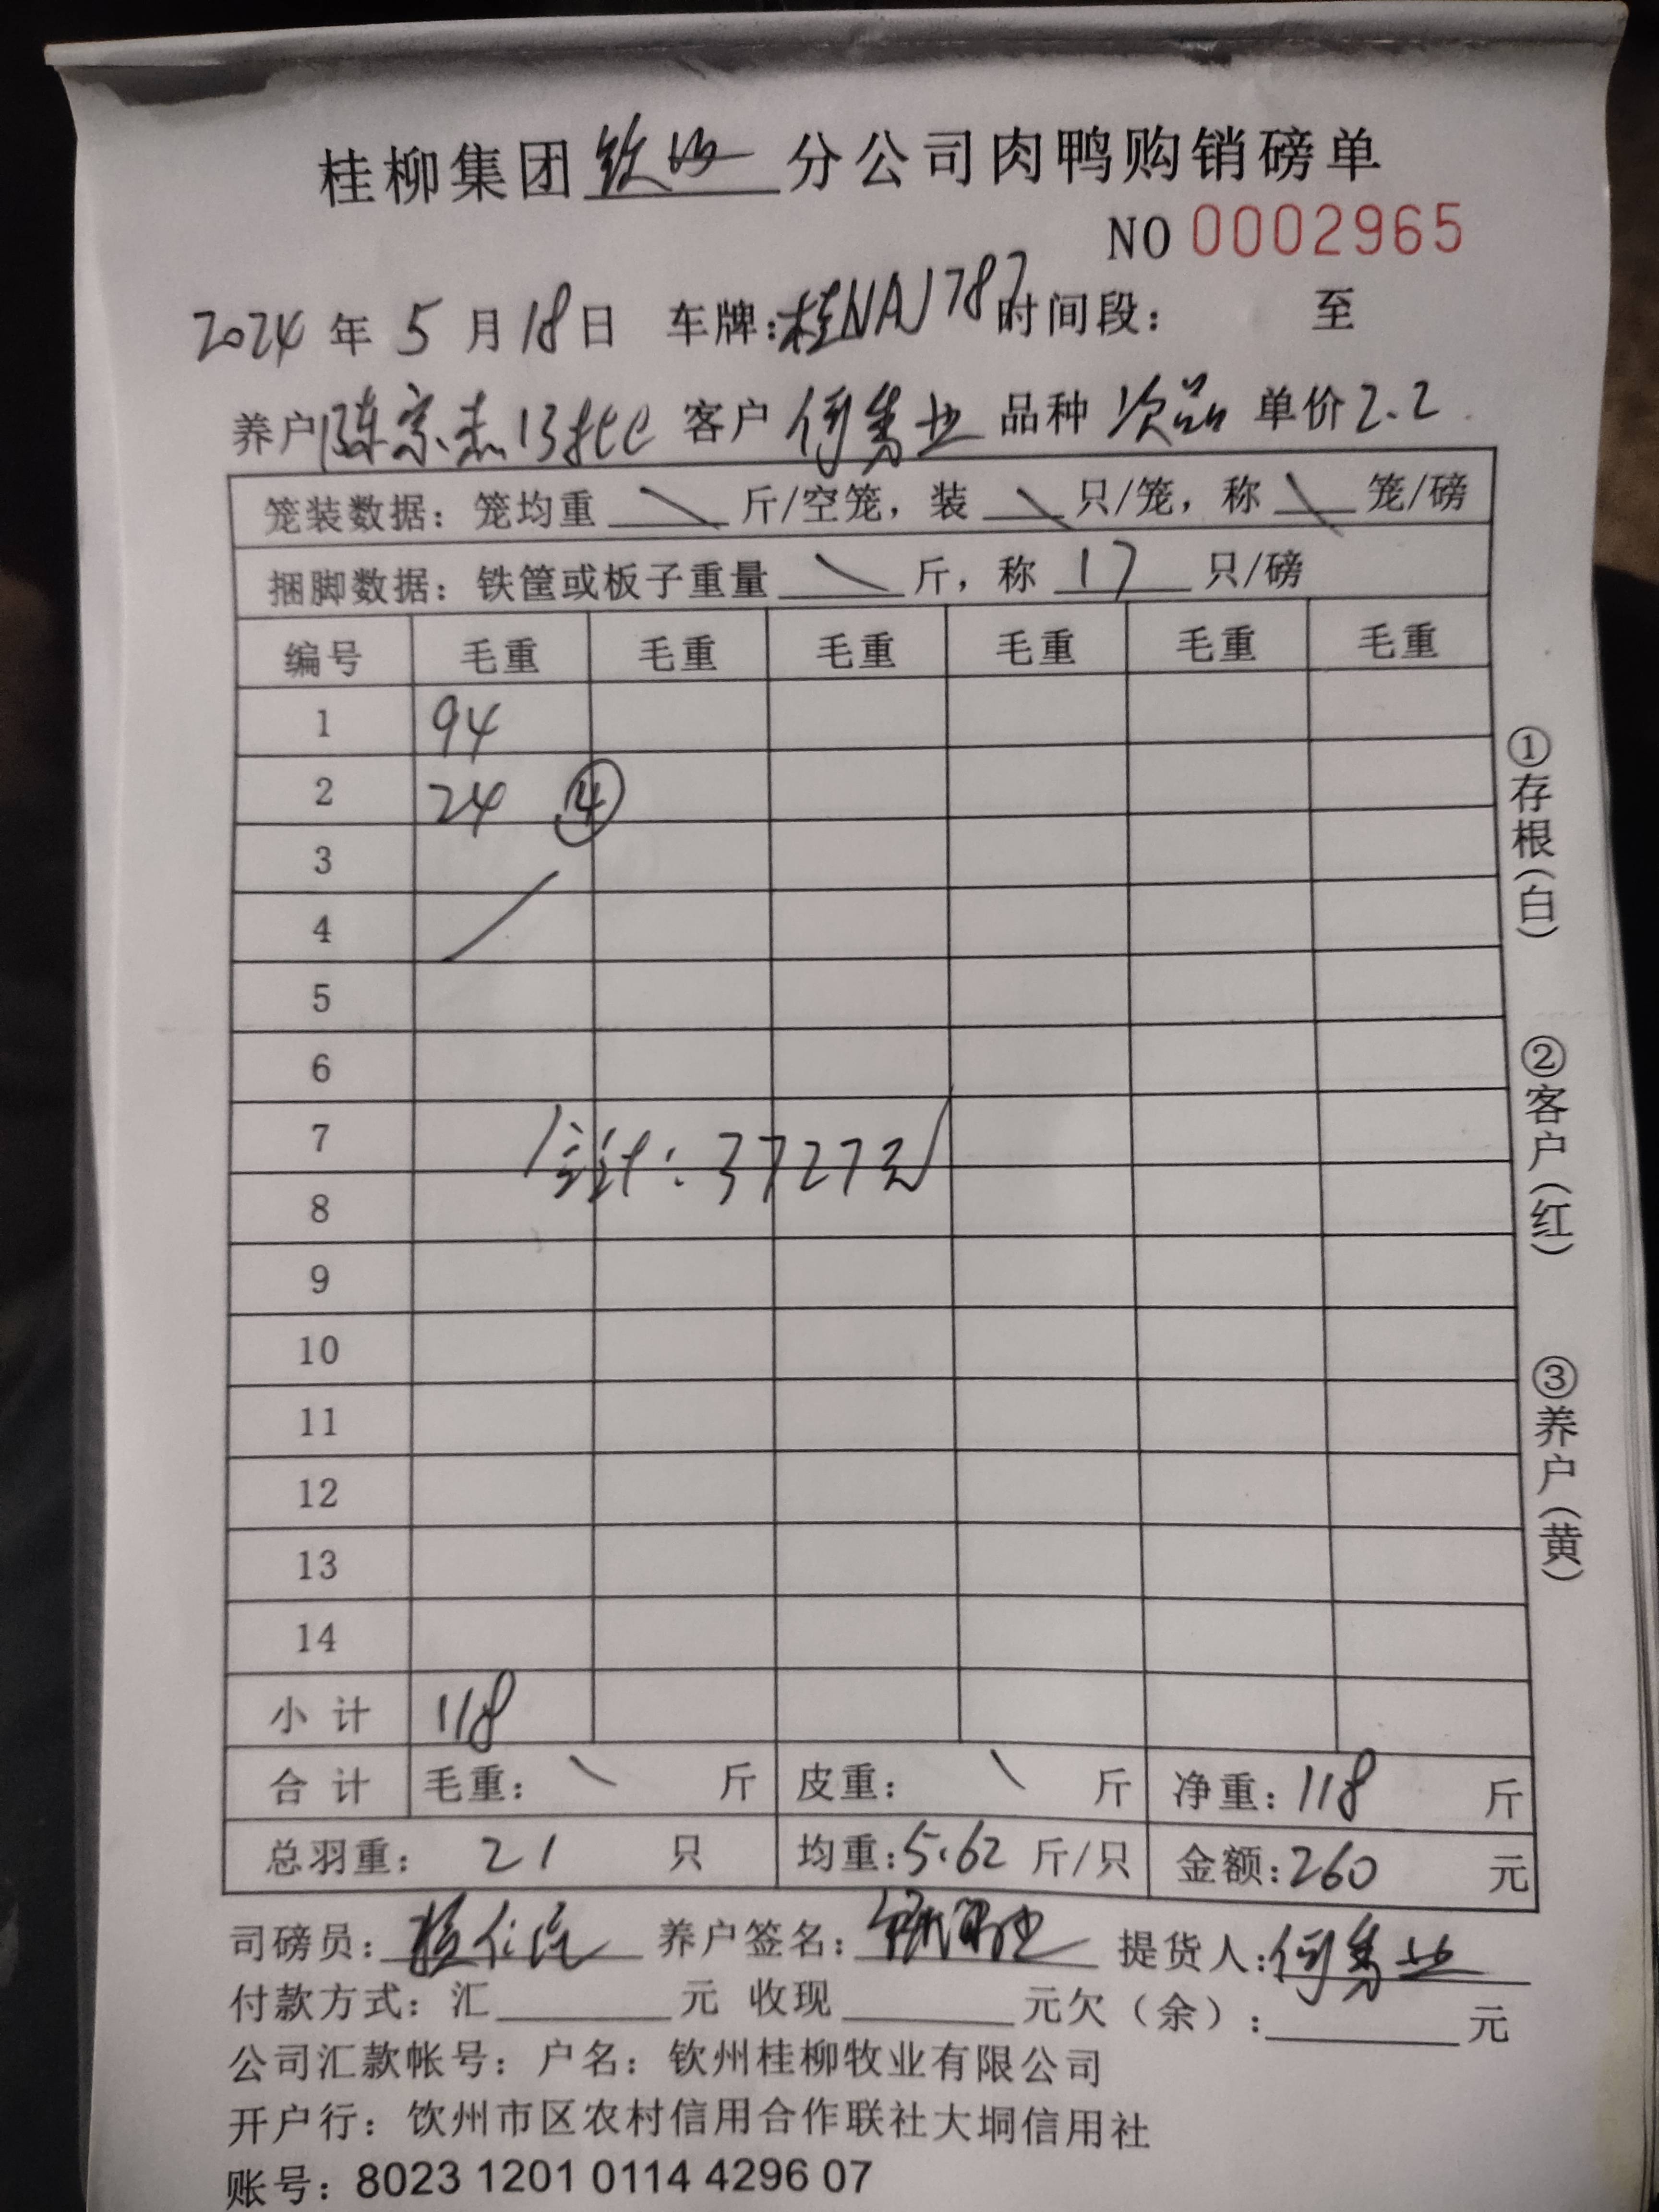 桂柳集团钦州分公司肉鸭购销磅单
NO 0002965
2024年5月18日 车牌:桂NAJ787 时间段: 至
养户 陈宗杰13批C 客户 何秀业 品种 次品 单价2.2
笼装数据:笼均重 \ 斤/空笼,装 \ 只/笼,称 \ 笼/磅
捆脚数据:铁筐或板子重量 \ 斤,称 17 只/磅
编号 毛重 毛重 毛重 毛重 毛重 毛重
1 94
2 24 ④
3
4
5
6
7
合计:3727元
8
9
10
11
12
13
14
小计 118
合计 毛重: \ 斤 皮重: \ 斤 净重:118 斤
总羽重: 21 只 均重:5.62 斤/只 金额:260 元
司磅员: 养户签名: 提货人:何秀业
付款方式:汇 元 收现 元欠(余): 元
公司汇款帐号:户名:钦州桂柳牧业有限公司
开户行:饮州市区农村信用合作联社大垌信用社
账号:8023 1201 0114 4296 07
①存根(白)
②客户(红)
③养户(黄)